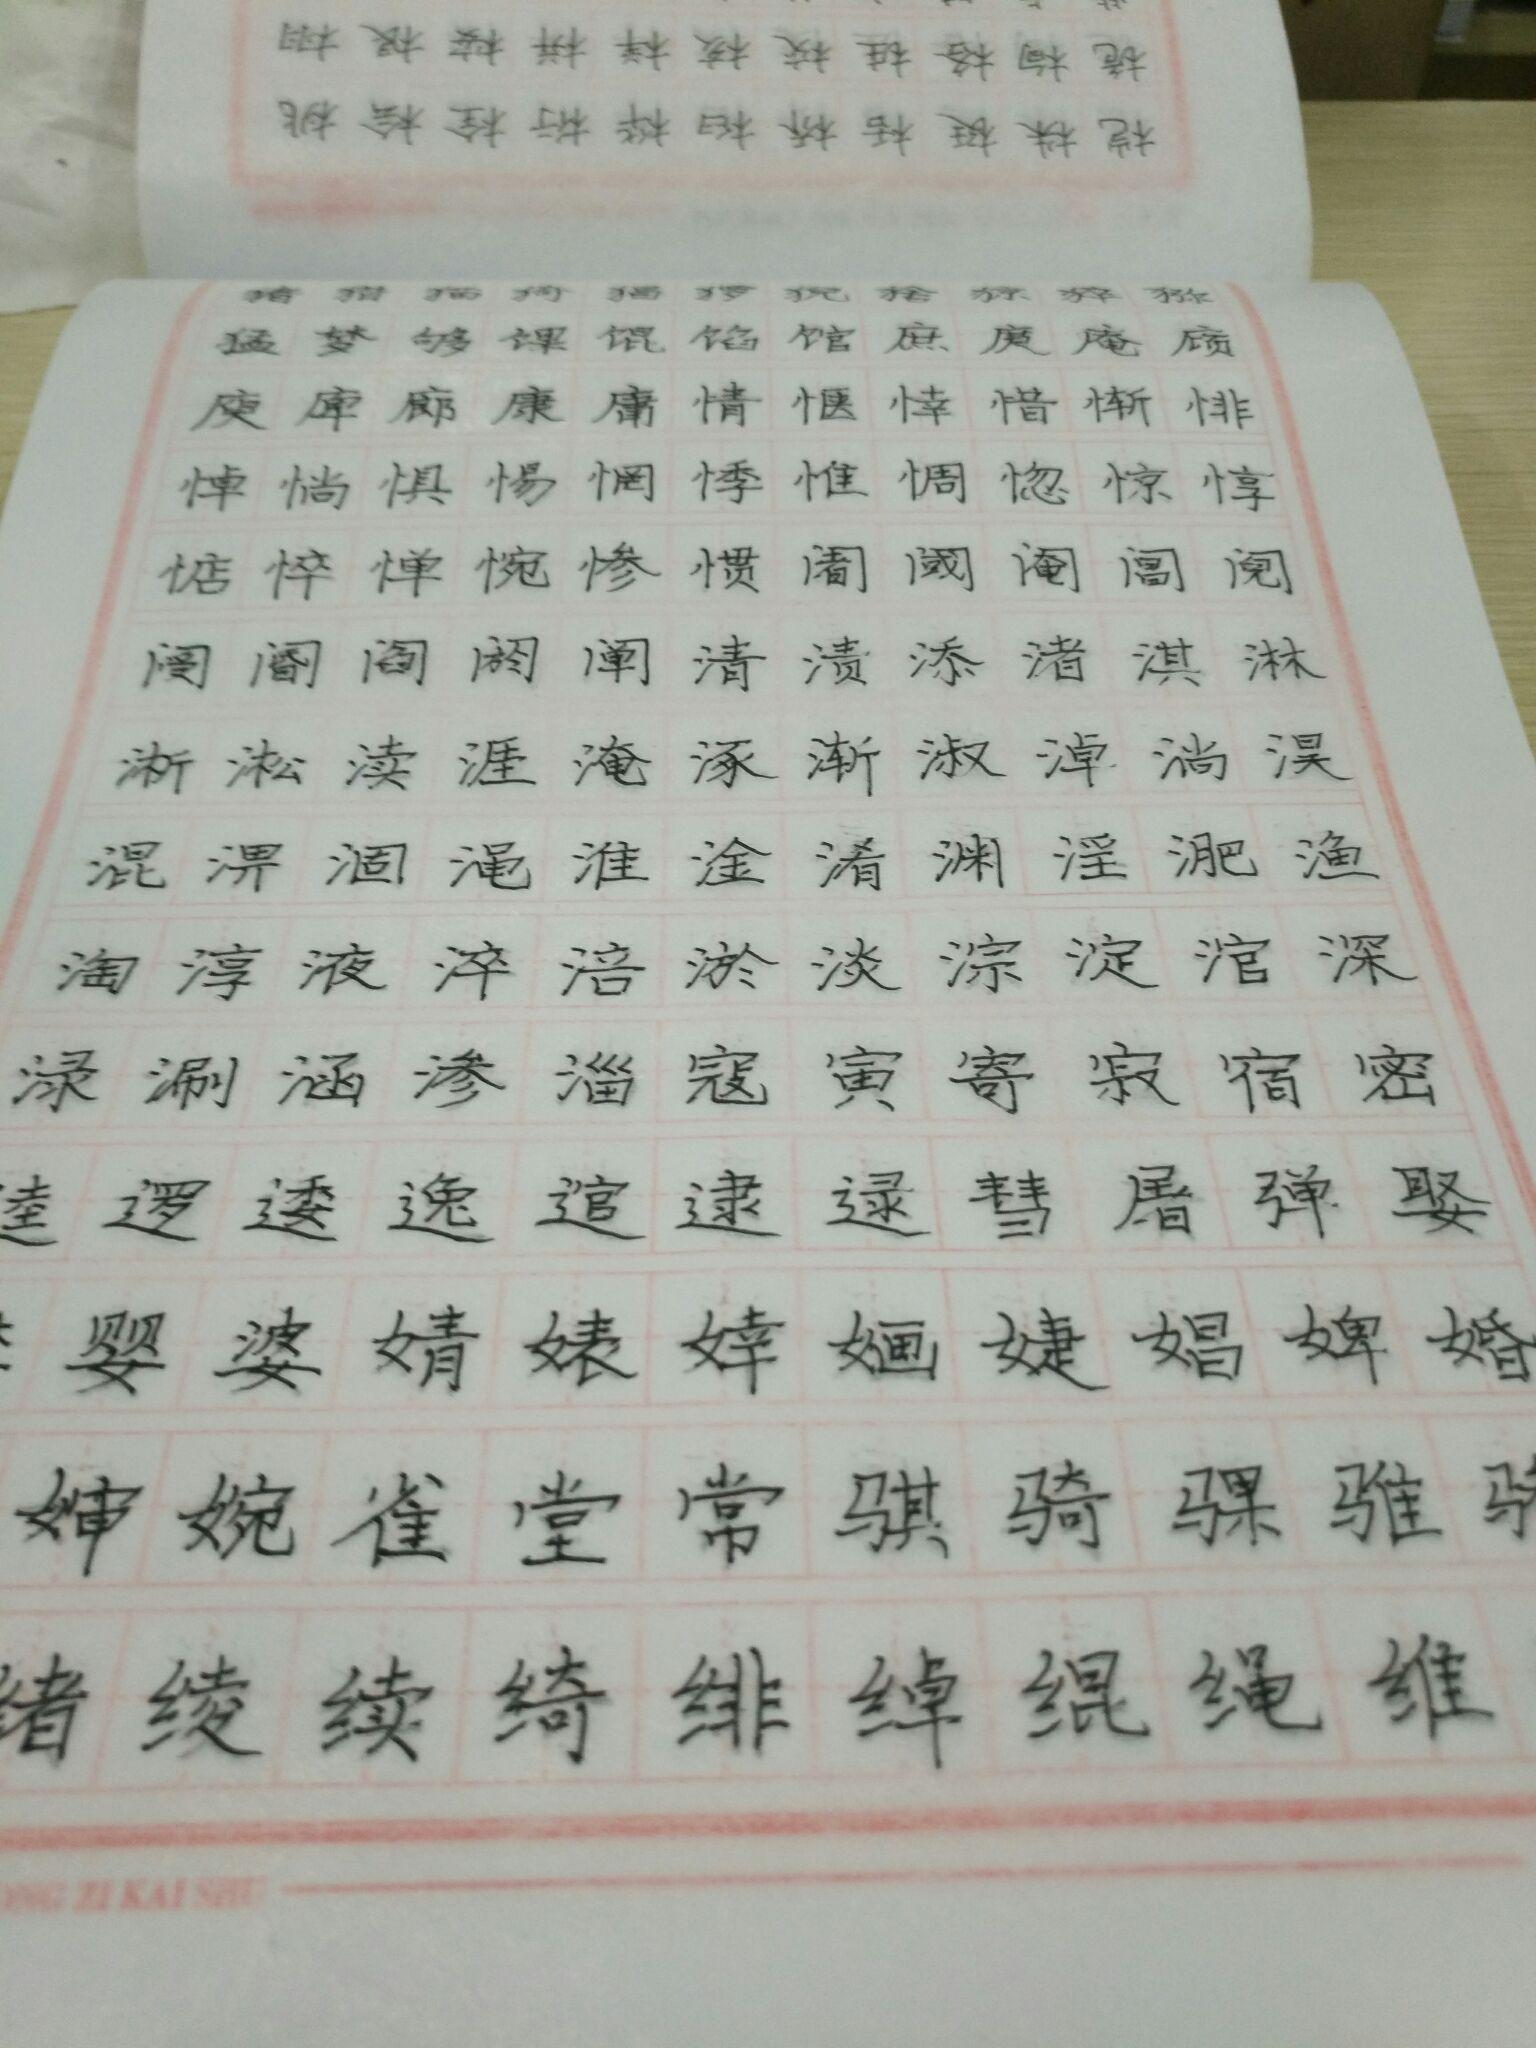 猪 猎 猫 猗 猖 猡 猊 猞 猄 猝 猕
猛 梦 够 馃 馄 馅 馆 庶 庹 庵 庼
庾 庳 廊 康 庸 情 惬 悻 惜 惭 悱
悼 惝 惧 惕 惘 悸 惟 惆 惚 惊 惇
惦 悴 惮 惋 惨 惯 阇 阈 阉 阊 阋
阌 阍 阎 阏 阐 清 渍 添 渚 淇 淋
淅 淞 渎 涯 淹 涿 渐 淑 淖 淌 淏
混 淠 涸 渑 淮 淦 淆 渊 淫 淝 渔
淘 淳 液 淬 涪 淤 淡 淙 淀 涫 深
渌 涮 涵 渗 淄 寇 寅 寄 寂 宿 密
逵 逻 逶 逸 逭 逮 逯 彗 屠 弹 娶
婴 婆 婧 婊 婞 婳 婕 娼 婢 婚
婶 婉 雀 堂 常 骐 骑 骒 骓
绪 绫 续 绮 绯 绰 绲 绳 维
ZI KAI SHU